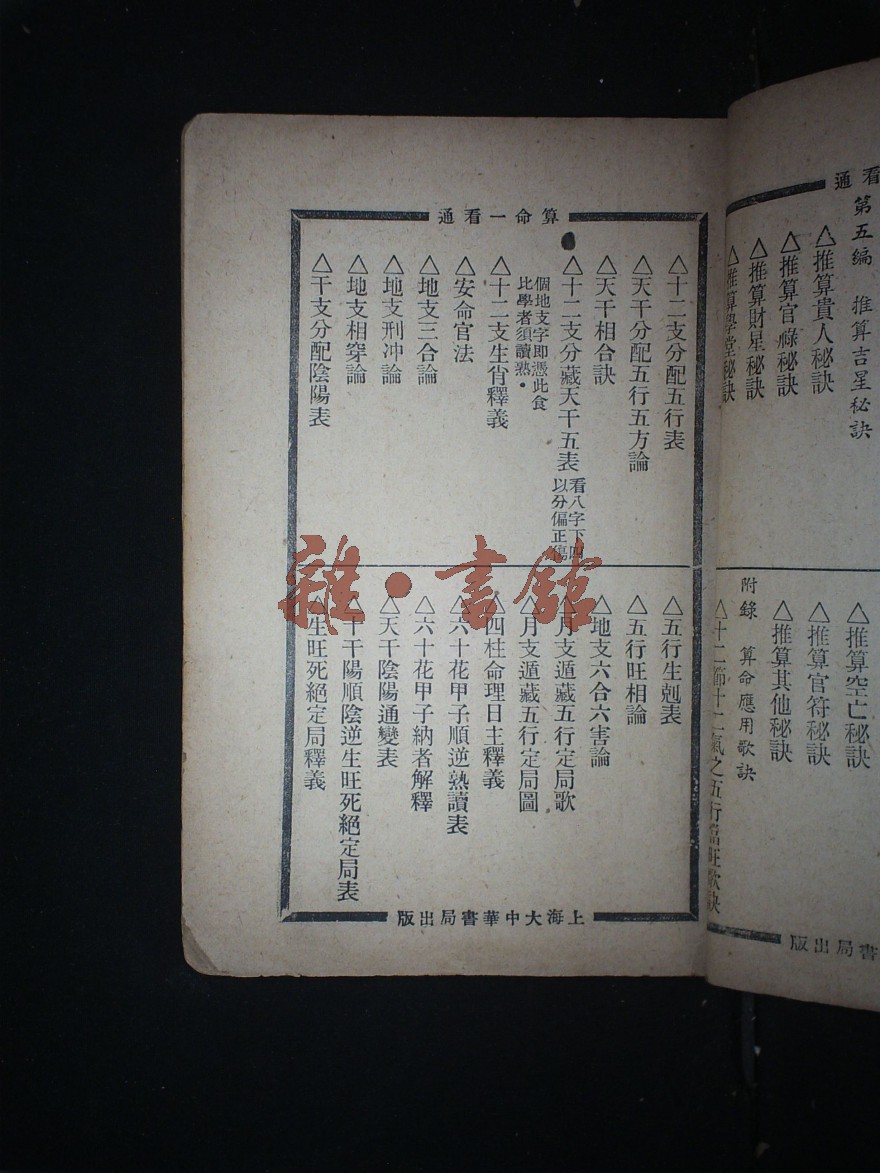 看通
第五編 推算吉星秘訣
△推算貴人秘訣
△推算官祿秘訣
△推算財星秘訣
△推算學堂秘訣
△推算空亡秘訣
△推算官符秘訣
△推算其他秘訣
附錄 算命應用歌訣
△十二節十二氣之五行
書局出版
算命一看通
△十二支分配五行表
△天干分配五行五方論
△天干相合訣
△十二支分藏天干五表
看八字下四
以分偏正傷
個地支字即憑此食
比學者須讀熟。
△十二支生肖釋義
△安命官法
△地支三合論
△地支刑冲論
△地支相穿論
△干支分配陰陽表
△五行生剋表
△五行旺相論
△地支六合六害論
△月支遁藏五行定局歌
△月支遁藏五行定局圖
△四柱命理日主釋義
△六十花甲子順逆熟讀表
△六十花甲子納者解釋
△天干陰陽通變表
△十干陽順陰逆生旺死絕定局表
△生旺死絕定局釋義
上海大中華書局出版
雜·書館